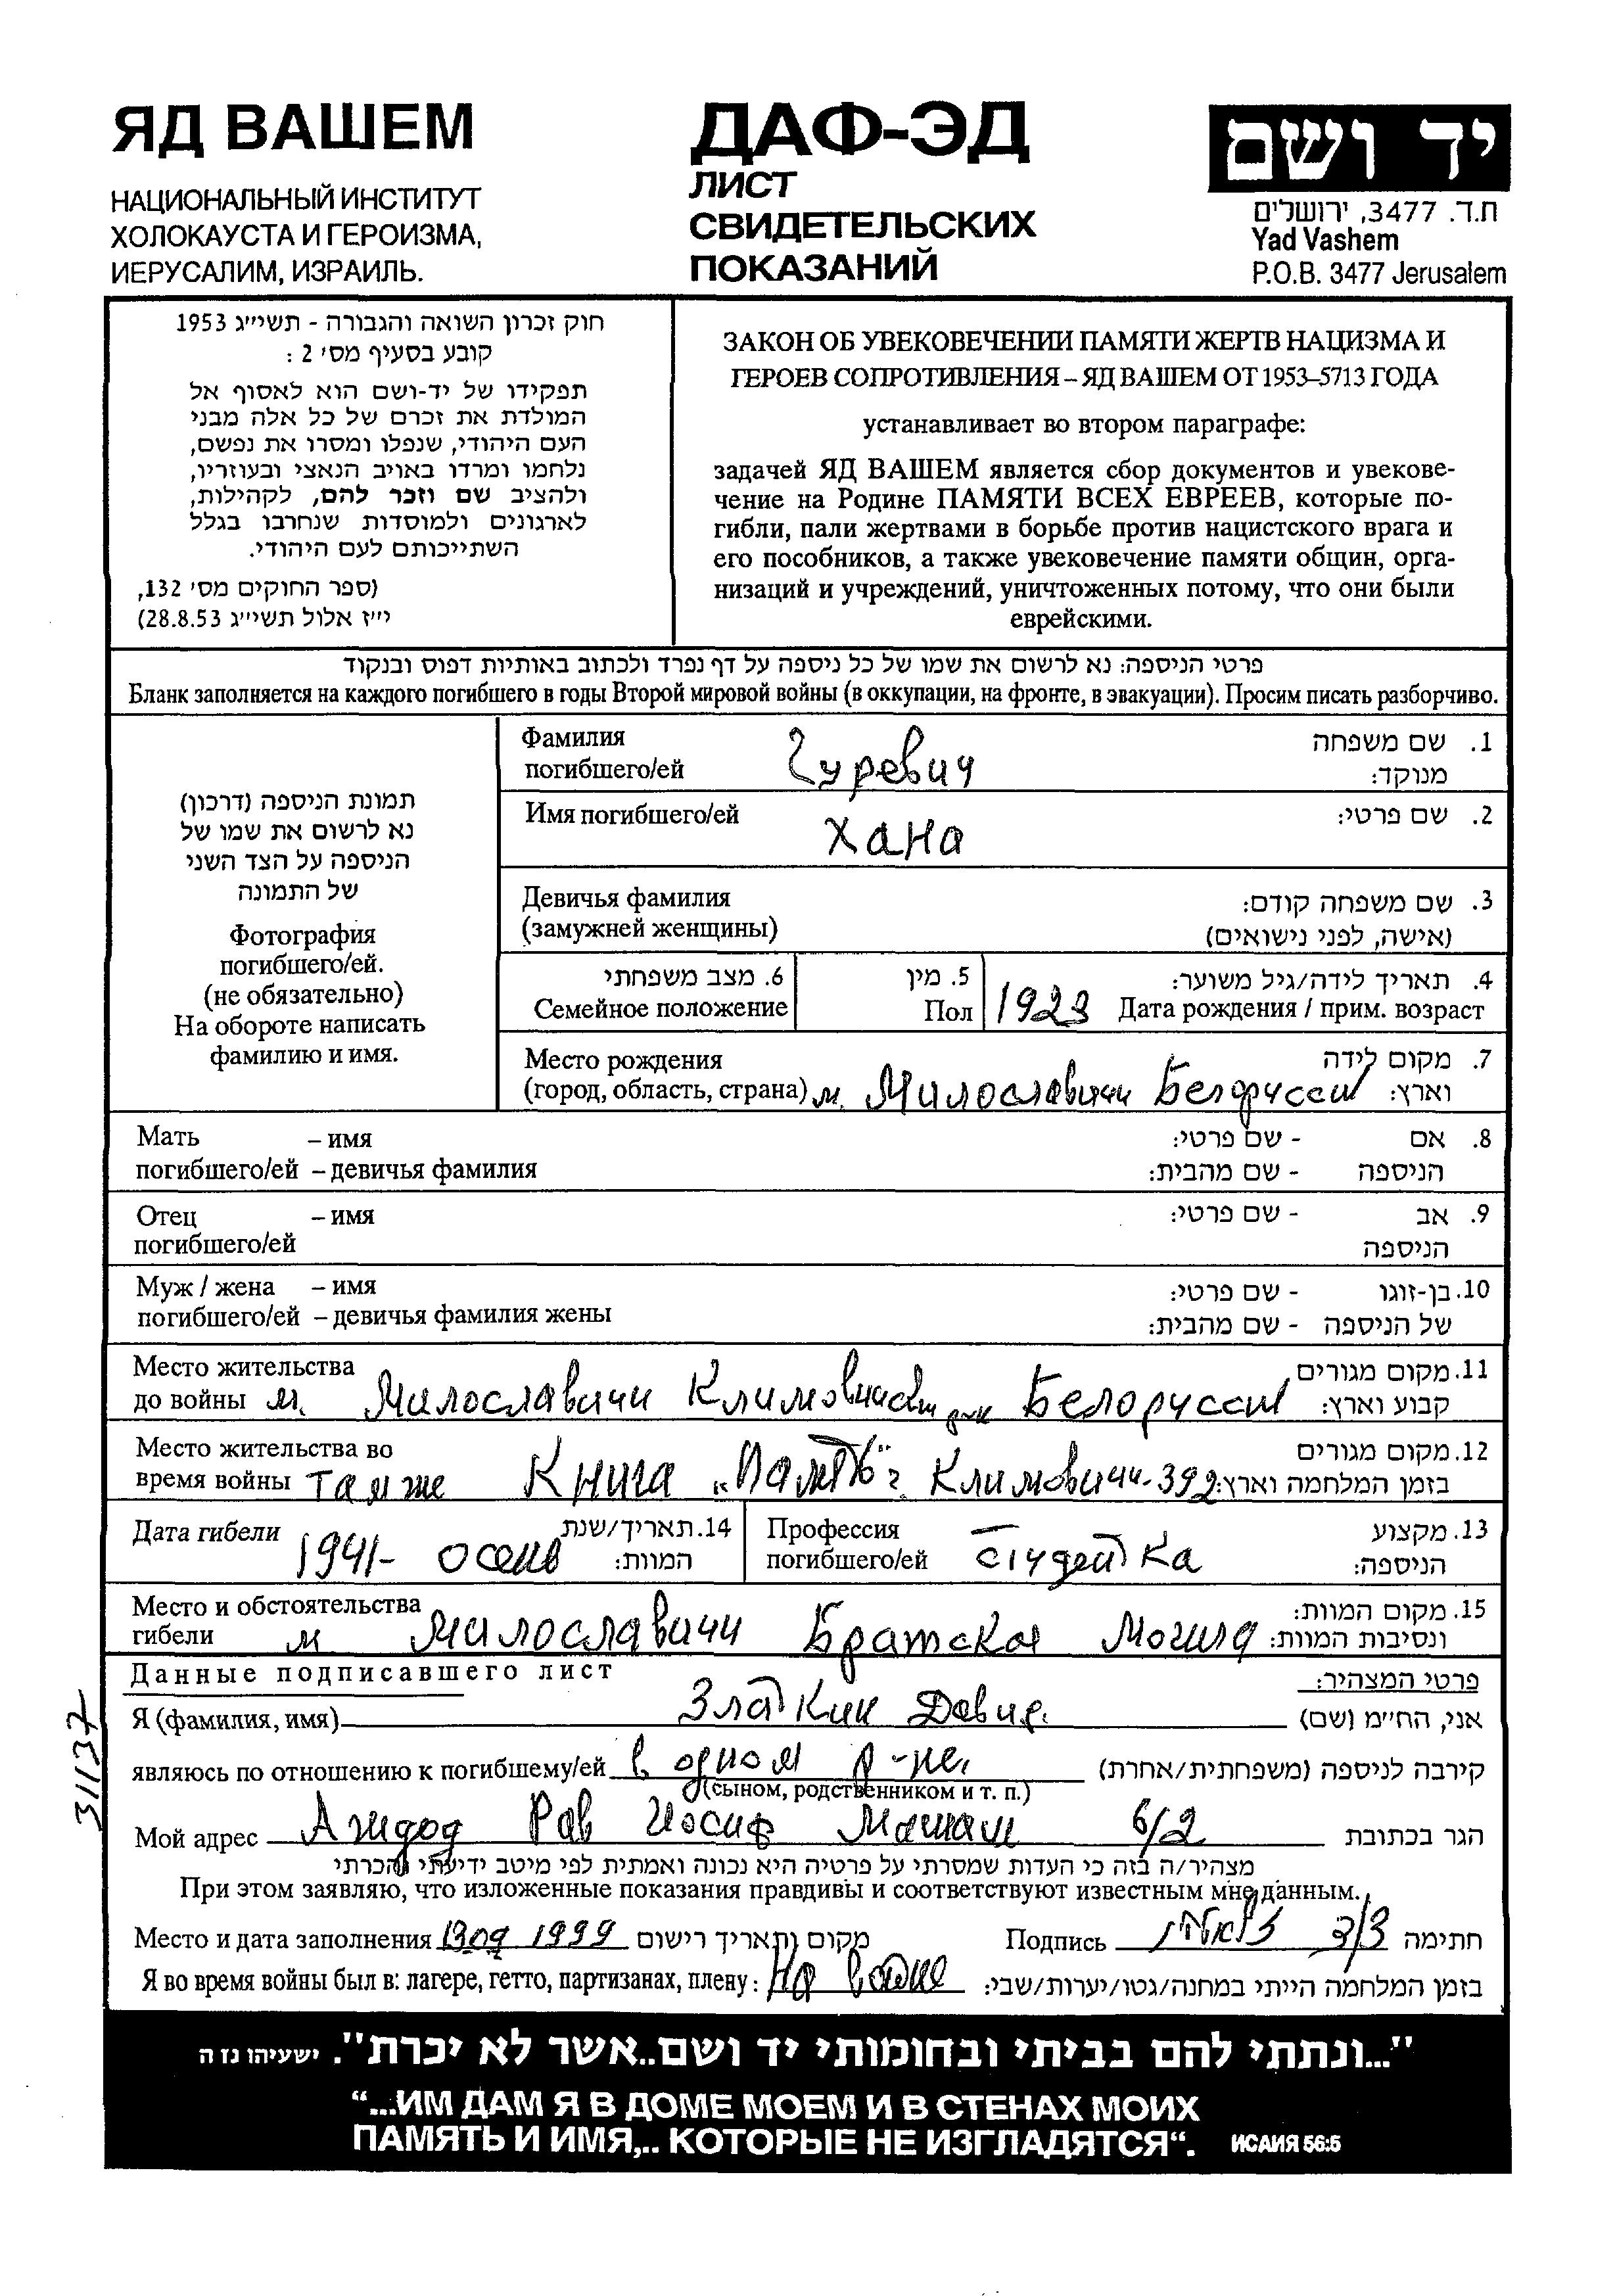 ЯД ВАШЕМ
НАЦИОНАЛЬНЫЙ ИНСТИТУТ
ХОЛОКАУСТА И ГЕРОИЗМА,
ИЕРУСАЛИМ, ИЗРАИЛЬ.
ДАФ-ЭД
ЛИСТ
СВИДЕТЕЛЬСКИХ
ПОКАЗАНИЙ
יד ושם
ת.ד. 3477, ירושלים
Yad Vashem
P.O.B. 3477 Jerusalem
חוק זכרון השואה והגבורה - תשי״ג 1953
קובע בסעיף מס׳ 2 :
תפקידו של יד-ושם הוא לאסוף אל
המולדת את זכרם של כל אלה מבני
העם היהודי, שנפלו ומסרו את נפשם,
נלחמו ומרדו באויב הנאצי ובעוזריו,
ולהציב שם וזכר להם, לקהילות,
לארגונים ולמוסדות שנחרבו בגלל
השתייכותם לעם היהודי.
(ספר החוקים מס׳ 132,
י״ז אלול תשי״ג 28.8.53)
ЗАКОН ОБ УВЕКОВЕЧЕНИИ ПАМЯТИ ЖЕРТВ НАЦИЗМА И
ГЕРОЕВ СОПРОТИВЛЕНИЯ – ЯД ВАШЕМ ОТ 1953–5713 ГОДА
устанавливает во втором параграфе:
задачей ЯД ВАШЕМ является сбор документов и увекове-
чение на Родине ПАМЯТИ ВСЕХ ЕВРЕЕВ, которые по-
гибли, пали жертвами в борьбе против нацистского врага и
его пособников, а также увековечение памяти общин, орга-
низаций и учреждений, уничтоженных потому, что они были
еврейскими.
פרטי הניספה: נא לרשום את שמו של כל ניספה על דף נפרד ולכתוב באותיות דפוס ובנקוד
Бланк заполняется на каждого погибшего в годы Второй мировой войны (в оккупации, на фронте, в эвакуации). Просим писать разборчиво.
תמונת הניספה (דרכון)
נא לרשום את שמו של
הניספה על הצד השני
של התמונה
Фотография
погибшего/ей.
(не обязательно)
На обороте написать
фамилию и имя.
Фамилия 1. שם משפחה
погибшего/ей Гуревич מנוקד:
Имя погибшего/ей Хана 2. שם פרטי:
Девичья фамилия 3. שם משפחה קודם:
(замужней женщины) (אישה, לפני נישואים)
6. מצב משפחתי 5. מין 4. תאריך לידה/גיל משוער:
Семейное положение Пол 1923 Дата рождения / прим. возраст
Место рождения 7. מקום לידה
(город, область, страна) м. Милославичи Белоруссии וארץ:
Мать – имя 8. אם - שם פרטי:
погибшего/ей – девичья фамилия הניספה - שם מהבית:
Отец – имя 9. אב - שם פרטי:
погибшего/ей הניספה
Муж / жена – имя 10. בן-זוגו - שם פרטי:
погибшего/ей – девичья фамилия жены של הניספה - שם מהבית:
Место жительства 11. מקום מגורים
до войны м. Милославичи Белоруссии קבוע וארץ:
Место жительства во 12. מקום מגורים
время войны там же Книга „Память" г. Климовичи-392 בזמן המלחמה וארץ:
Дата гибели 1941- осень 14. תאריך/שנת המוות:
Профессия 13. מקצוע
погибшего/ей студентка הניספה:
Место и обстоятельства 15. מקום המוות:
гибели м Милославичи Братская могила ונסיבות המוות:
Данные подписавшего лист פרטי המצהיר:
Я (фамилия, имя) Златкин Давид. אני, החי״מ (שם)
являюсь по отношению к погибшему/ей в одном р-не קירבה לניספה (משפחתית/אחרת)
(сыном, родственником и т. п.)
Мой адрес Ашдод Рав Иосиф Машаш 6/2 הגר בכתובת
מצהיר/ה בזה כי העדות שמסרתי על פרטיה היא נכונה ואמתית לפי מיטב ידיעתי והכרתי
При этом заявляю, что изложенные показания правдивы и соответствуют известным мне данным.
Место и дата заполнения 1999 מקום ותאריך רישום Подпись חתימה
Я во время войны был в: лагере, гетто, партизанах, плену: На войне בזמן המלחמה הייתי במחנה/גטו/יערות/שבי:
31137
"...ונתתי להם בביתי ובחומותי יד ושם..אשר לא יכרת". ישעיהו נז ה
“...ИМ ДАМ Я В ДОМЕ МОЕМ И В СТЕНАХ МОИХ
ПАМЯТЬ И ИМЯ,.. КОТОРЫЕ НЕ ИЗГЛАДЯТСЯ“. ИСАИЯ 56:5